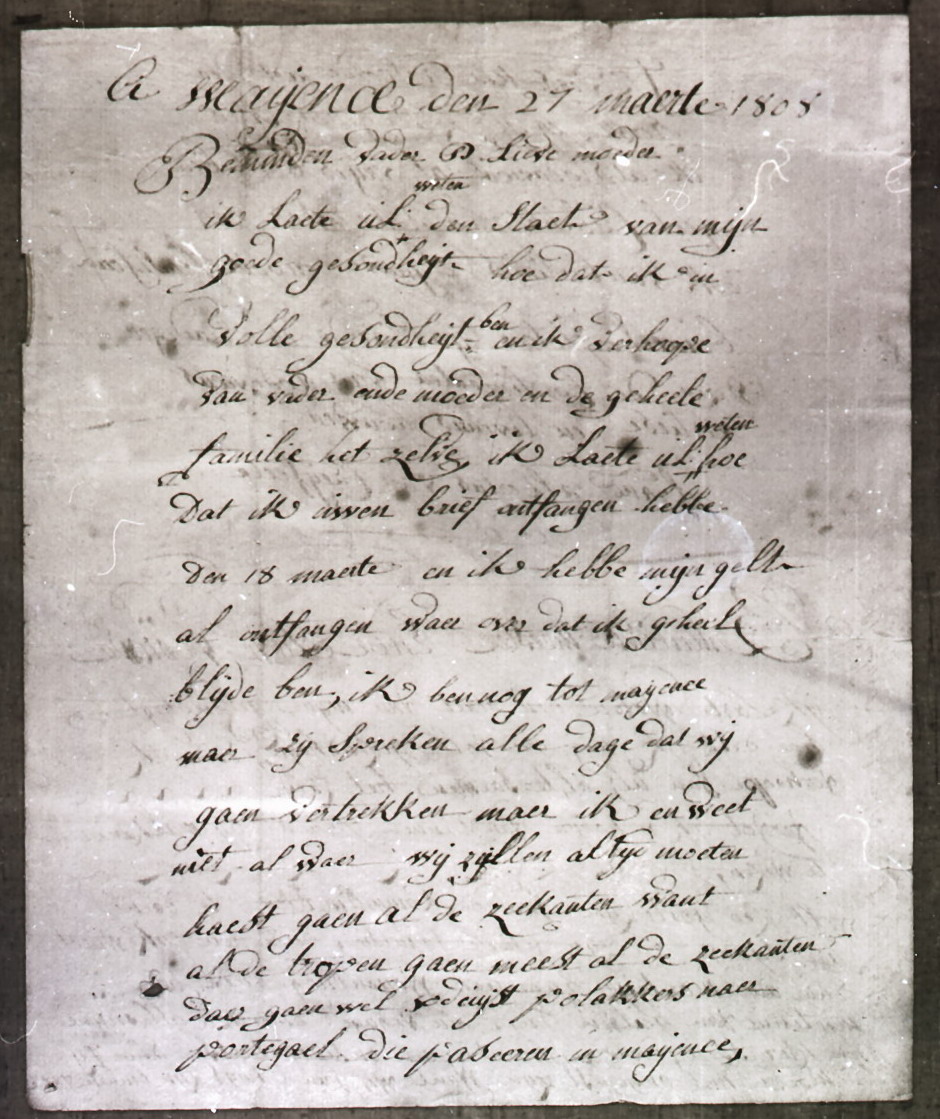 A Mayence den 27 maerte 1808
Beminden vader & Lieve moeder
weten
ik Laete ul den Staet van mijn
goede gesondheyt hoe dat ik in
volle gesondheyt ben en ik verhoope
van vader ende moeder en de geheele
weten
familie het zelve, ik Laete ul hoe
Dat ik uwen brief ontfangen hebbe
den 18 maerte en ik hebbe mijn gelt
al ontfangen waer over dat ik geheel
blijde ben, ik ben nog tot mayence
maer zij spreken alle dage dat wij
gaen vertrekken maer ik en weet
niet al waer wij zyllen altyd moeten
haest gaen al de zeekanten want
al de tropen gaen meest al de zeekanten
daer gaen wel polakkers naer
portegael die paseeren in mayence,